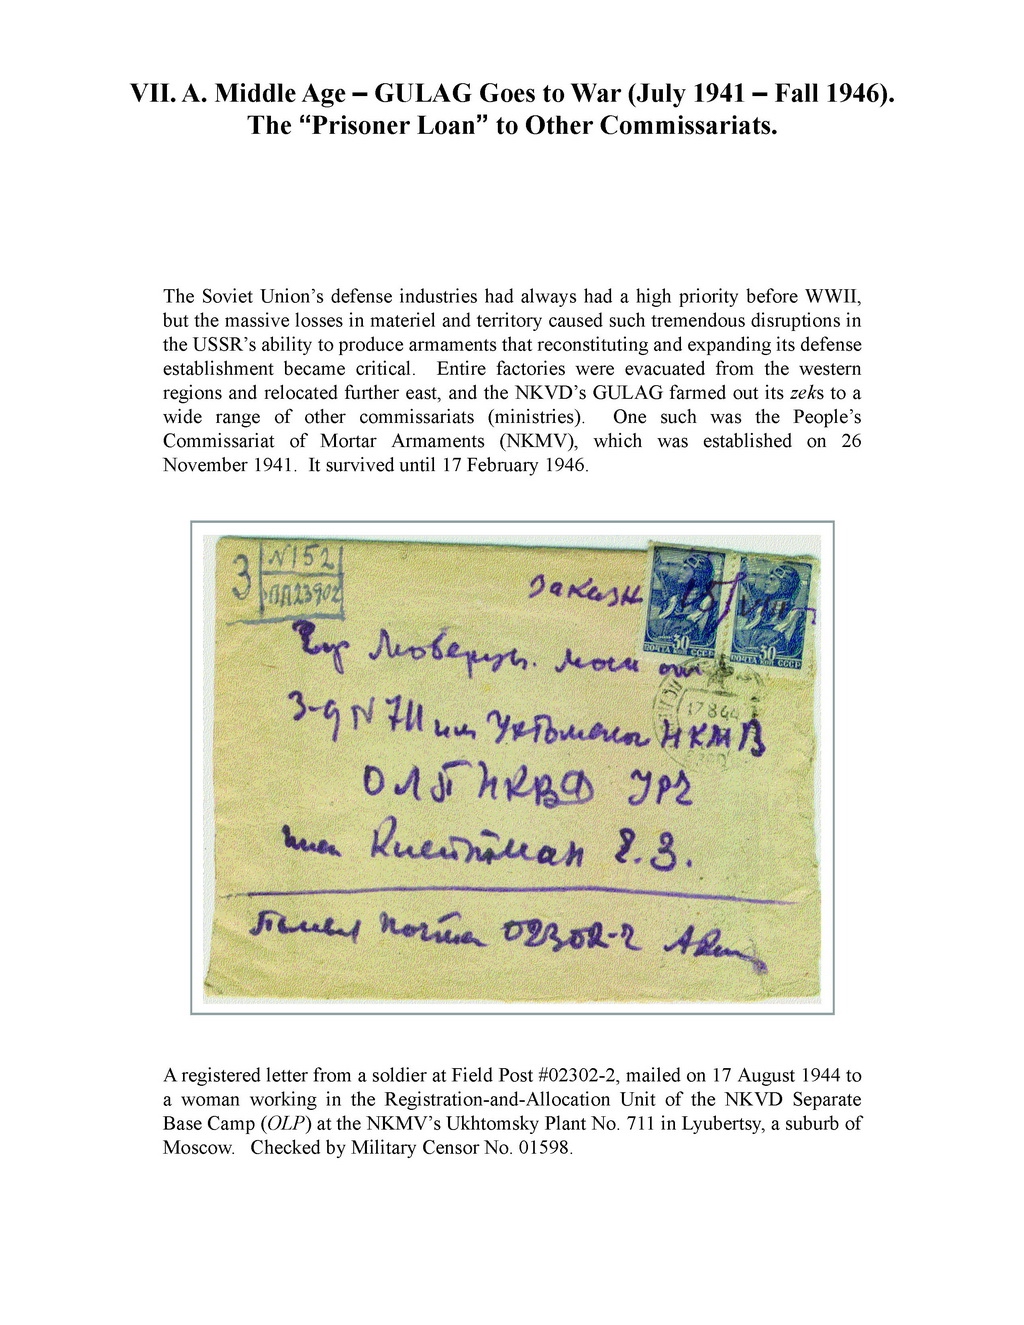 VII. A. Middle Age – GULAG Goes to War (July 1941 – Fall 1946).
The “Prisoner Loan” to Other Commissariats.
The Soviet Union’s defense industries had always had a high priority before WWII,
but the massive losses in materiel and territory caused such tremendous disruptions in
the USSR’s ability to produce armaments that reconstituting and expanding its defense
establishment became critical. Entire factories were evacuated from the western
regions and relocated further east, and the NKVD’s GULAG farmed out its zeks to a
wide range of other commissariats (ministries). One such was the People’s
Commissariat of Mortar Armaments (NKMV), which was established on 26
November 1941. It survived until 17 February 1946.
3 N152
ПП23902
Заказн
30 30
ПОЧТА КОП СССР ПОЧТА КОП СССР
гор Люберцы. моск
17 8 44
З-д N 711 им Ухтомского НКМВ
ОЛП НКВД УРЧ
Е.З.
Полевая почта 02302-2
A registered letter from a soldier at Field Post #02302-2, mailed on 17 August 1944 to
a woman working in the Registration-and-Allocation Unit of the NKVD Separate
Base Camp (OLP) at the NKMV’s Ukhtomsky Plant No. 711 in Lyubertsy, a suburb of
Moscow. Checked by Military Censor No. 01598.